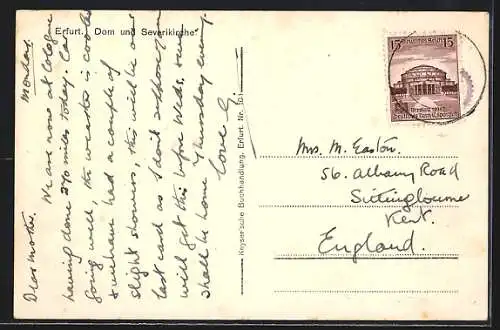 Erfurt. Dom und Severikirche
Monday.
Dear mother.
We are now at Cologne
having done 270 miles today. Car
going well, the weather is cooler
had a couple of
slight showers, this will be our
last card as I don't suppose you
will get this before Weds, we
shall be home Thursday evening.
Love
Keyser'sche Buchhandlung, Erfurt. Nr. 101
15 Deutsches Reich 15
Mrs. M. Easton.
56. Albany Road
Sittingbourne
Kent.
England.